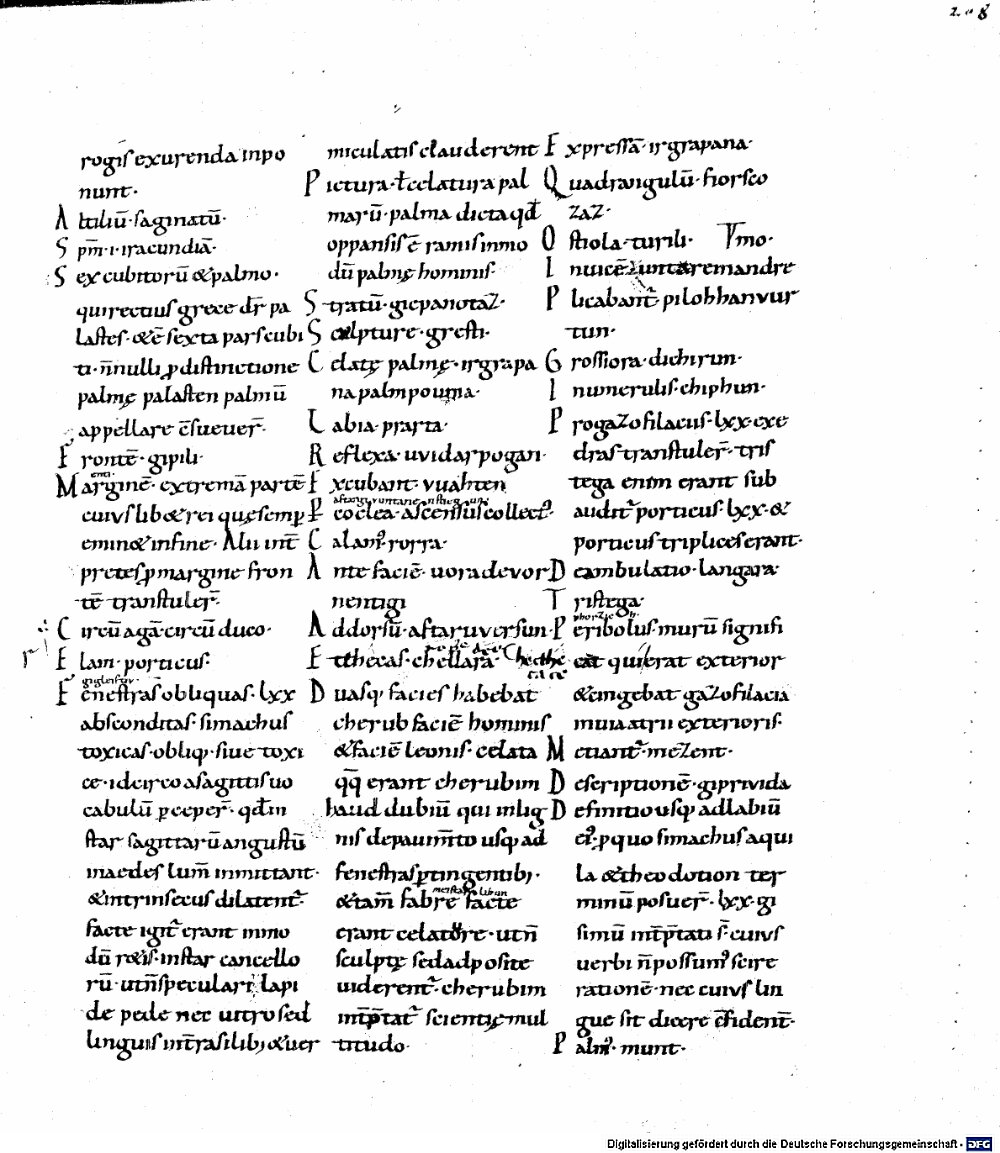 208
rogis exurenda inpo
nunt·
Altiliū· saginatū·
Spm̄·i·iracundiā·
Sex cubitorū &palmo·
qui rectius grece dr̄ pa
lastes·&ē sexta pars cubi
ti· n̄nulli ꝓ distinctione
palmę palasten palmū
appellare c̄sueuer̄·
Frontē· gipili·
Marginē· extremā partē
cuius lib& rei quę semp̲
emin& infine· Alii int̄
pretes ꝓ margine fron
tē transtuler̄·
Circū agā· circū duco·
Elam· porticus·
Fenestras obliquas· lxx
absconditas· simachus
toxicas· obliq;· siue toxi
ce· idcirco a sagittis uo
cabulū p̲ceper̄· qd̄ in
star sagittarū angustū
in aedes lum̄ inmittant·
&intrinsecus dilatent᷑·
facte igit᷑ erant inmo
dū r&is· instar cancello
rū· utn̄ speculari lapi
de pede nec uitro sed
linguis int̄rasilib; &uer
miculatis clauderent᷑
Pictura· ł celatura pal
marū· palma dicta qd̄
oppansis ē ramis inmo
dū palmę hominis·
Stratū· giepanotaz·
Sculpture· grefti·
Celatę palmę· irgrapa
na palmpouma·
Labia· prarta·
Reflexa· uvidarpogan·
Excubant· vuahten
Per cocleā· ascensus collect᷒·
Calam᷒· rorra·
Ante faciē· uora devor
nentigi
Ad dorsū· aftar uversun·
Et thecas· chellara·
Duasq; facies habebat
cherub faciē hominis
&faciē leonis· celata
qq̄ erant cherubim
haud dubiū qui in lig
nis de pauim̄to usq; ad
fenestras p̲tingentib;·
&tam̄ fabre facte
erant celature· utn̄
sculptę sed adposite
uiderent᷑· cherubim
int̄p̄tat᷑ scientię mul
titudo·
Expressā· irgrapana·
Quadrangulū· fiorsco
zaz·
Ostiola· turili·
Inuicē iuntaremandre
Plicabant᷑· pilohhan vur
tun·
Grossiora· dichirun·
Innumerulis· chiphun·
Progazofilacus· lxx· exe
dras transtuler̄· tris
tega enim erant sub
audit᷑ porticus· lxx·&
porticus triplices erant·
Deambulatio· langara·
Tristega·
Peribolus· murū signifi
cat qui erat exterior
&cingebat gazofilacia
in uia atrii exterioris·
Metiant᷑· mezent·
Descriptionē· giprivida
Definitio usq; ad labiū
ei᷒· p̲ quo simachus aqui
la &theodotion ter
minū posuer̄· lxx· gi
simū int̄p̄tati s̄· cuius
uerbi n̄ possum᷒ scire
rationē· nec cuius lin
gue sit dicere c̄fident᷑·
Palm᷒· munt·
Digitalisierung gefördert durch die Deutsche Forschungsgemeinschaft - DFG